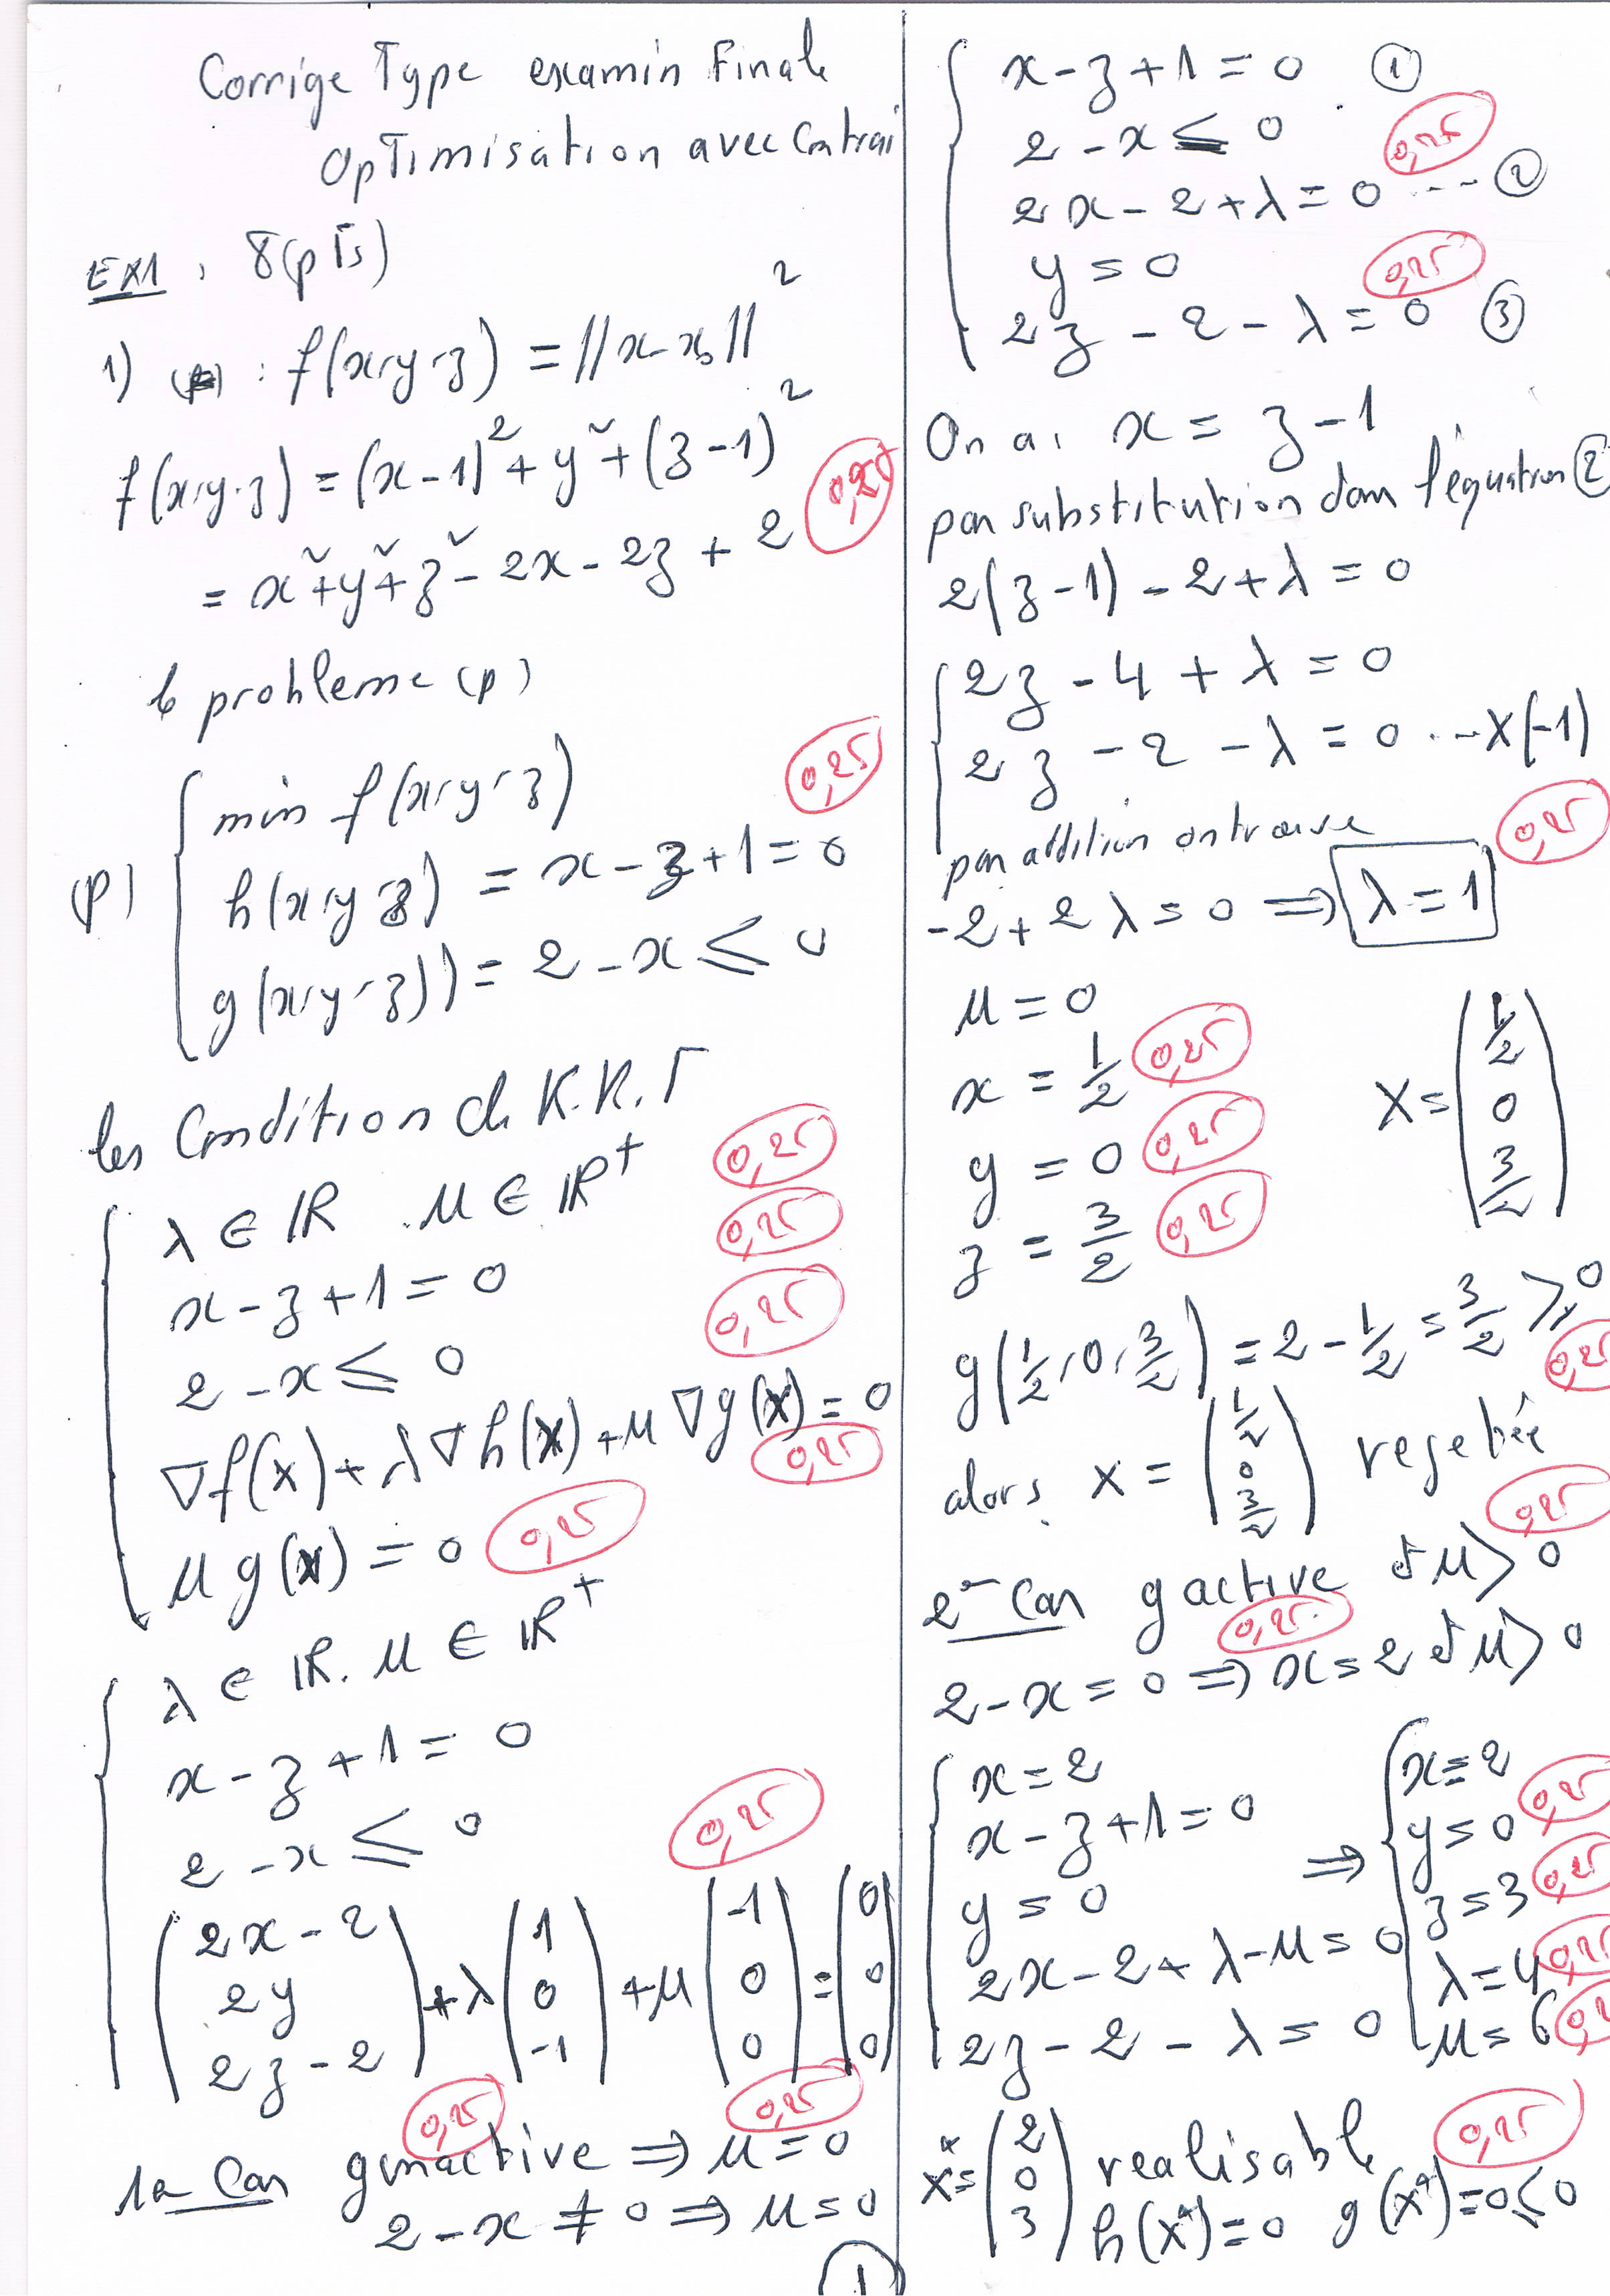 Corrige Type examin Finale
Optimisation avec Contrai
EX1 : 8(pTs)
1) (P) : f(x,y,z) = ||x-x₀||²
f(x,y,z) = (x-1)² + y² + (z-1)² 0,25
= x²+y²+z² - 2x - 2z + 2
le probleme (p)
(P) { min f(x,y,z) 0,25
h(x,y,z) = x - z + 1 = 0
g(x,y,z)) = 2 - x ≤ 0
les Condition de K.K.T
λ ∈ IR . μ ∈ IR⁺ 0,25
x - z + 1 = 0 0,25
2 - x ≤ 0 0,25
∇f(x) + λ∇h(x) + μ∇g(x) = 0 0,25
μ g(x) = 0 0,25
λ ∈ IR. μ ∈ IR⁺
x - z + 1 = 0
2 - x ≤ 0 0,25
(2x - 2, 2y, 2z - 2) + λ (1, 0, -1) + μ (-1, 0, 0) = (0, 0, 0)
0,25 0,25
1e Cas g inactive ⇒ μ = 0
2 - x ≠ 0 ⇒ μ = 0
1
x - z + 1 = 0 ①
2 - x ≤ 0 0,25
2x - 2 + λ = 0 --- ②
y = 0 0,25
2z - 2 - λ = 0 ③
On a : x = z - 1
par substitution dans l'équation ②
2(z-1) - 2 + λ = 0
2z - 4 + λ = 0
2z - 2 - λ = 0 --- X(-1)
par addition on trouve 0,25
-2 + 2λ = 0 ⇒ λ = 1
μ = 0
x = 1/2 0,25
y = 0 0,25
z = 3/2 0,25
X = (1/2, 0, 3/2)
g(1/2, 0, 3/2) = 2 - 1/2 = 3/2 ≥ 0 0,25
alors x = (1/2, 0, 3/2) rejetée 0,25
2e Cas g active et μ > 0
0,25
2 - x = 0 ⇒ x = 2 et μ > 0
x = 2
x - z + 1 = 0
y = 0
2x - 2 + λ - μ = 0
2z - 2 - λ = 0
⇒ { x = 2
y = 0 0,25
z = 3 0,25
λ = 4 0,25
μ = 6
x* = (2, 0, 3) realisable 0,25
h(x*) = 0 g(x*) = 0 ≤ 0